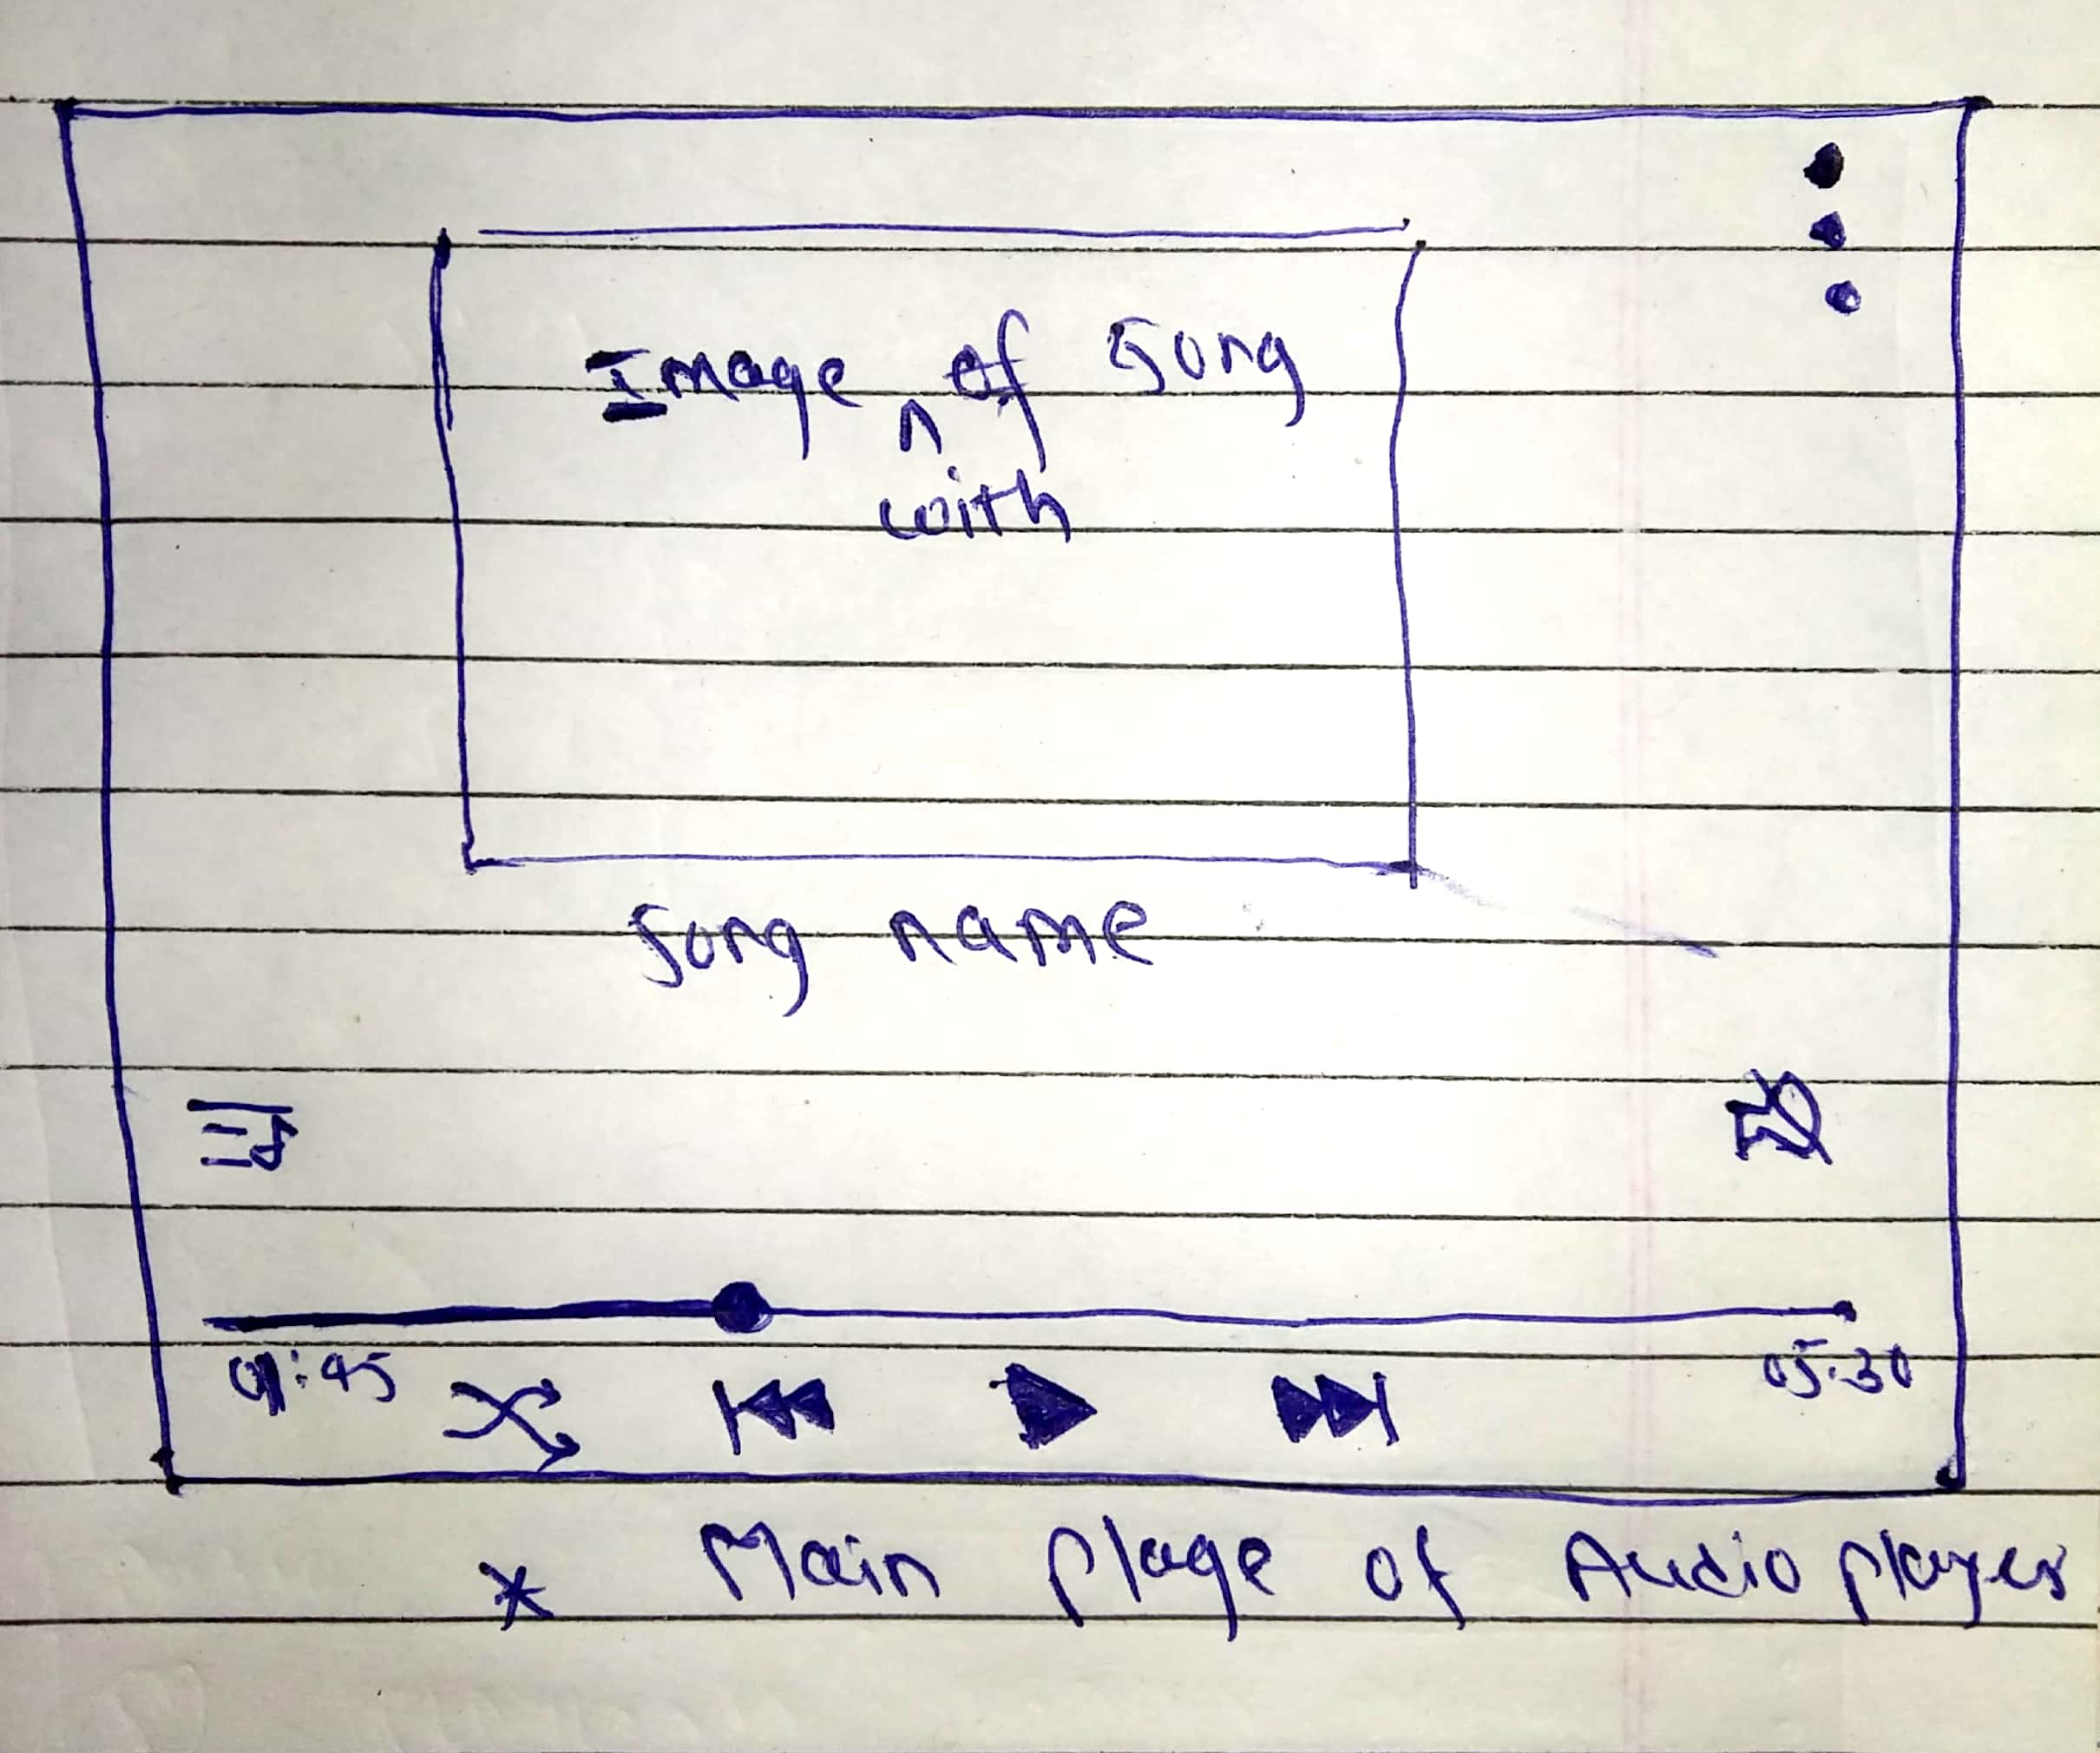 Image of Song
with
Song name
01:45
05:30
* Main Plage of Audio player